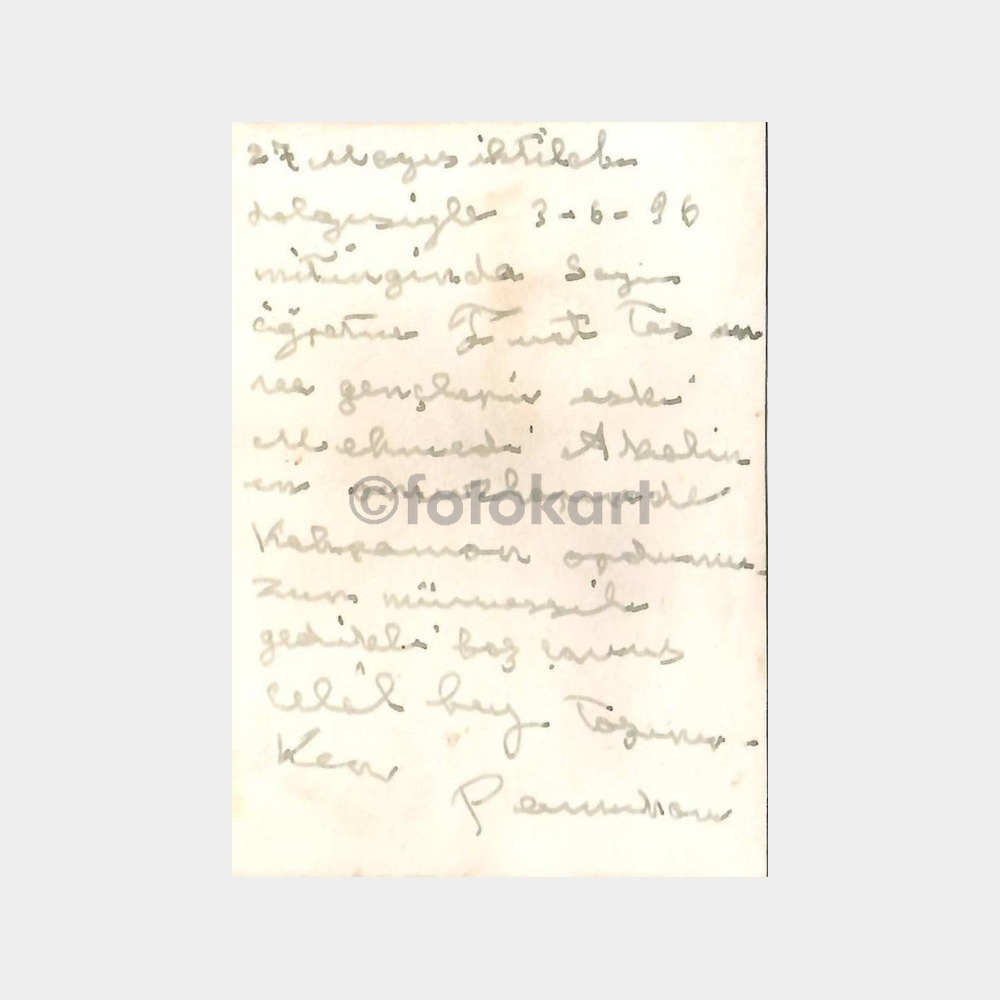 27 Mayıs ihtilali
dolayısiyle 3-6-96
mitinginde Sayın
öğretmen Fuat Taş
gençlerin eski
Mehmedi Akalın
©fotokart
Kahraman ordumu-
zun mümessili
gedikli baş çavuş
Celâl bey Taşını-
Ken